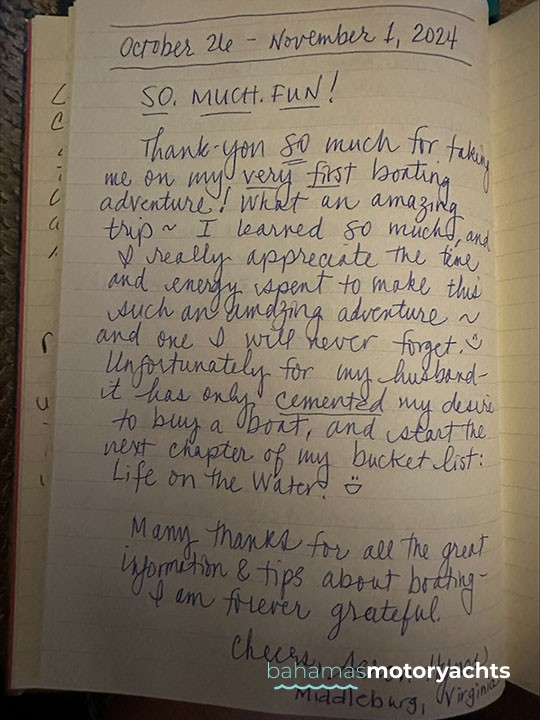 October 26 - November 1, 2024
SO. MUCH. FUN!
Thank-you so much for taking
me on my very first boating
adventure! What an amazing
trip ~ I learned so much, and
I really appreciate the time
and energy spent to make this
such an amazing adventure ~
and one I will never forget. :)
Unfortunately for my husband-
it has only cemented my desire
to buy a boat, and start the
next chapter of my bucket list:
Life on the Water! :)
Many thanks for all the great
information & tips about boating-
I am forever grateful.
Cheers,
bahamasmotoryachts
Middleburg, Virginia